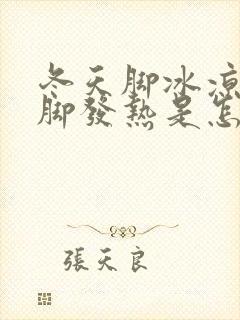 冬天脚冰凉
脚發熱是怎
張天良